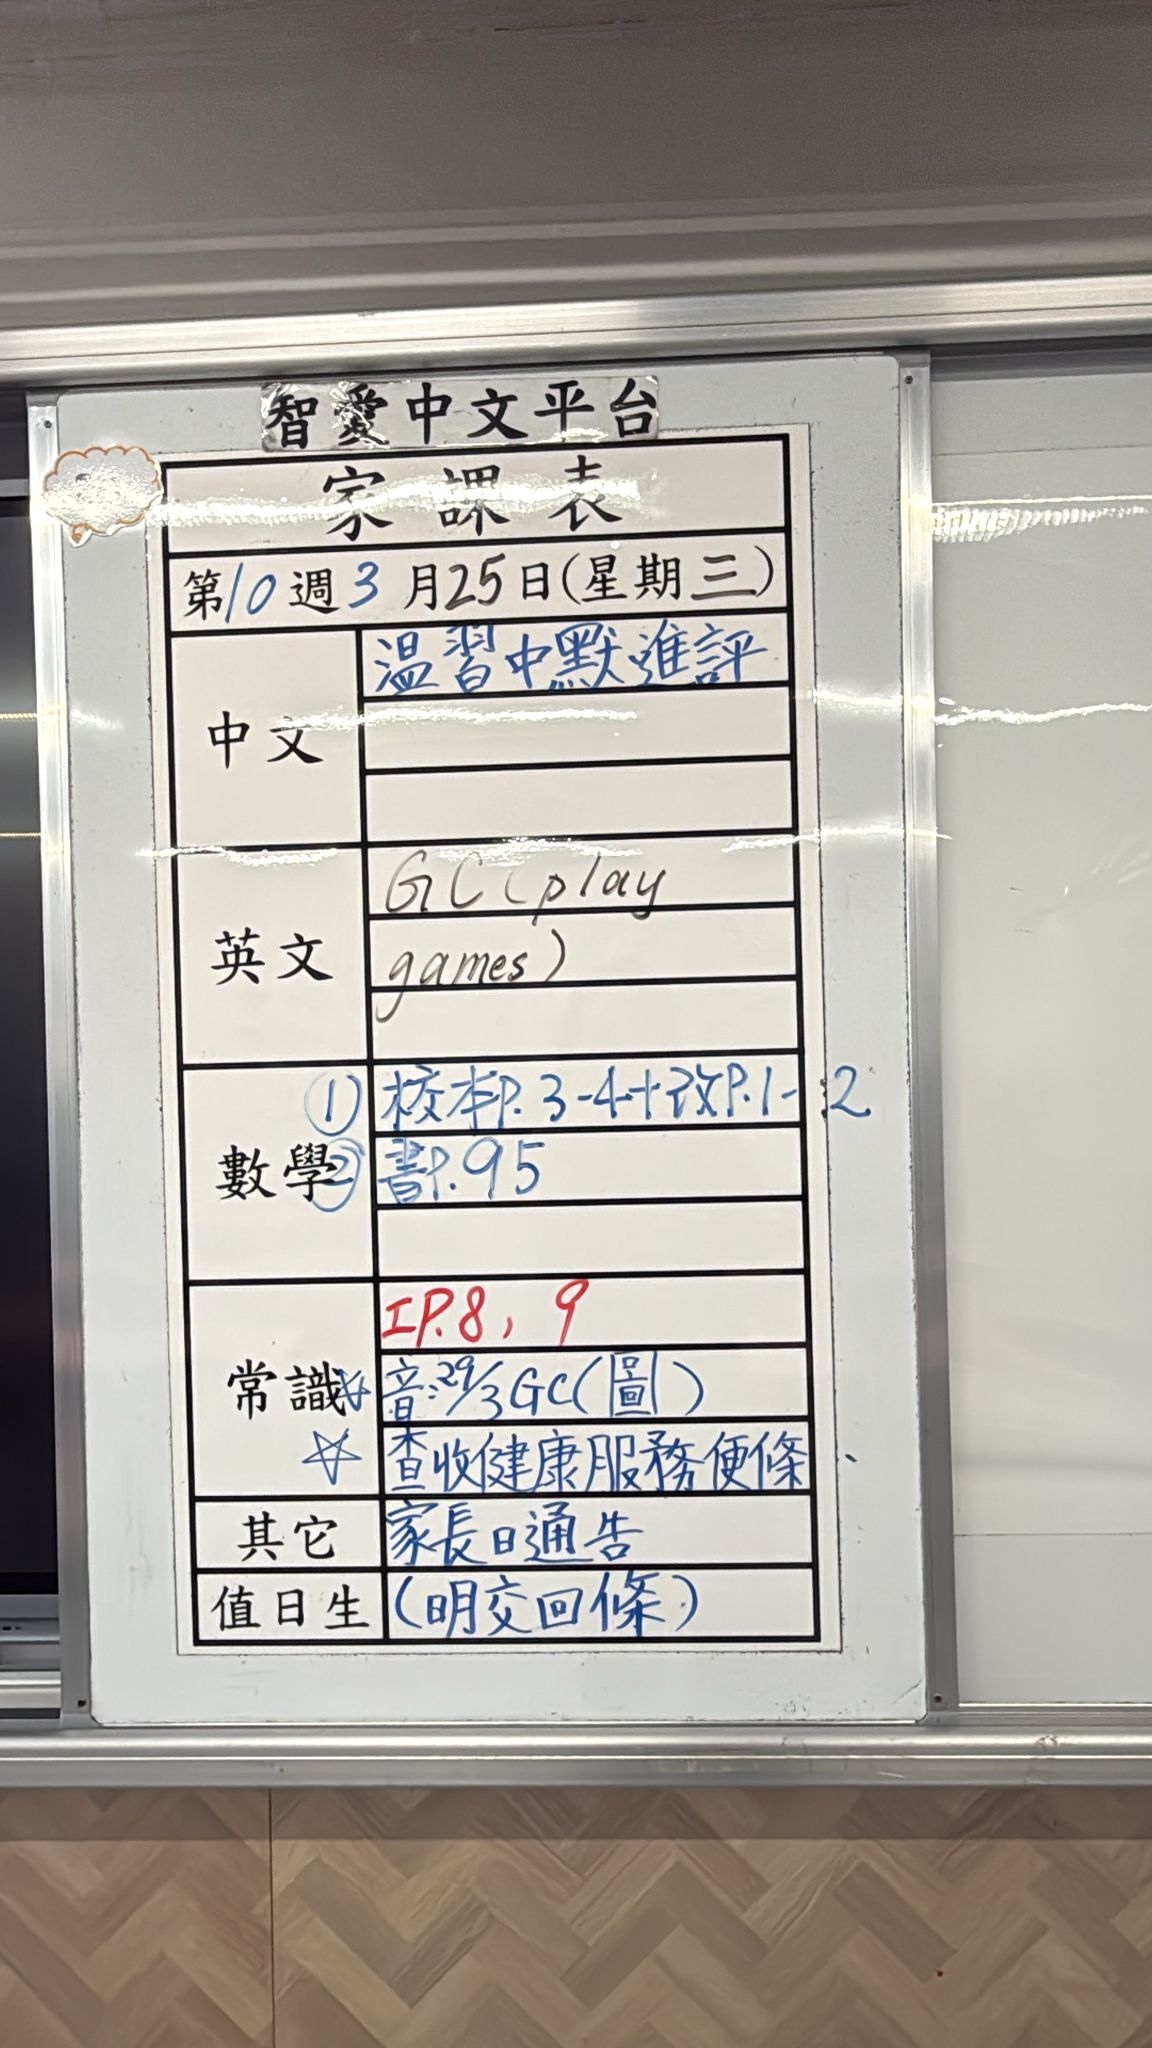 智愛中文平台
家課表
第10週3月25日(星期三)
中文
温習中默進評
英文
GC(play
games)
數學
① 校本P.3-4+改P.1-2
② 書P.95
常識
工P.8, 9
☆ 音:29/3GC(圖)
☆ 查收健康服務便條
其它
家長日通告
值日生
(明交回條)